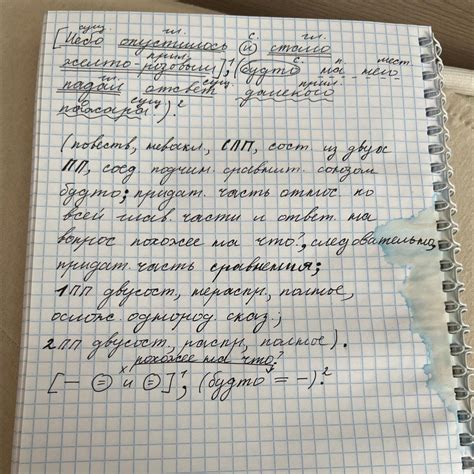 сущ. гл. с. гл.
[Небо опустилось и стало
прил.
желто-розовым]¹, (будто на него
п. мест.
гл. сущ. прил.
падал отсвет далекого
сущ.
пожара.)²
(повеств, невоскл, СПП, сост. из двух
ПП, соед. подчин. сравнит. союзом
будто; придат. часть относ ко
всей глав. части и ответ. на
вопрос похоже на что?, следовательно,
придат. часть сравнения;
1 ПП двусост, нераспр, полное,
ослож. однород. сказ.;
2 ПП двусост, распр, полное).
похоже на что?
х
[— = и =]¹, (будто = —).²